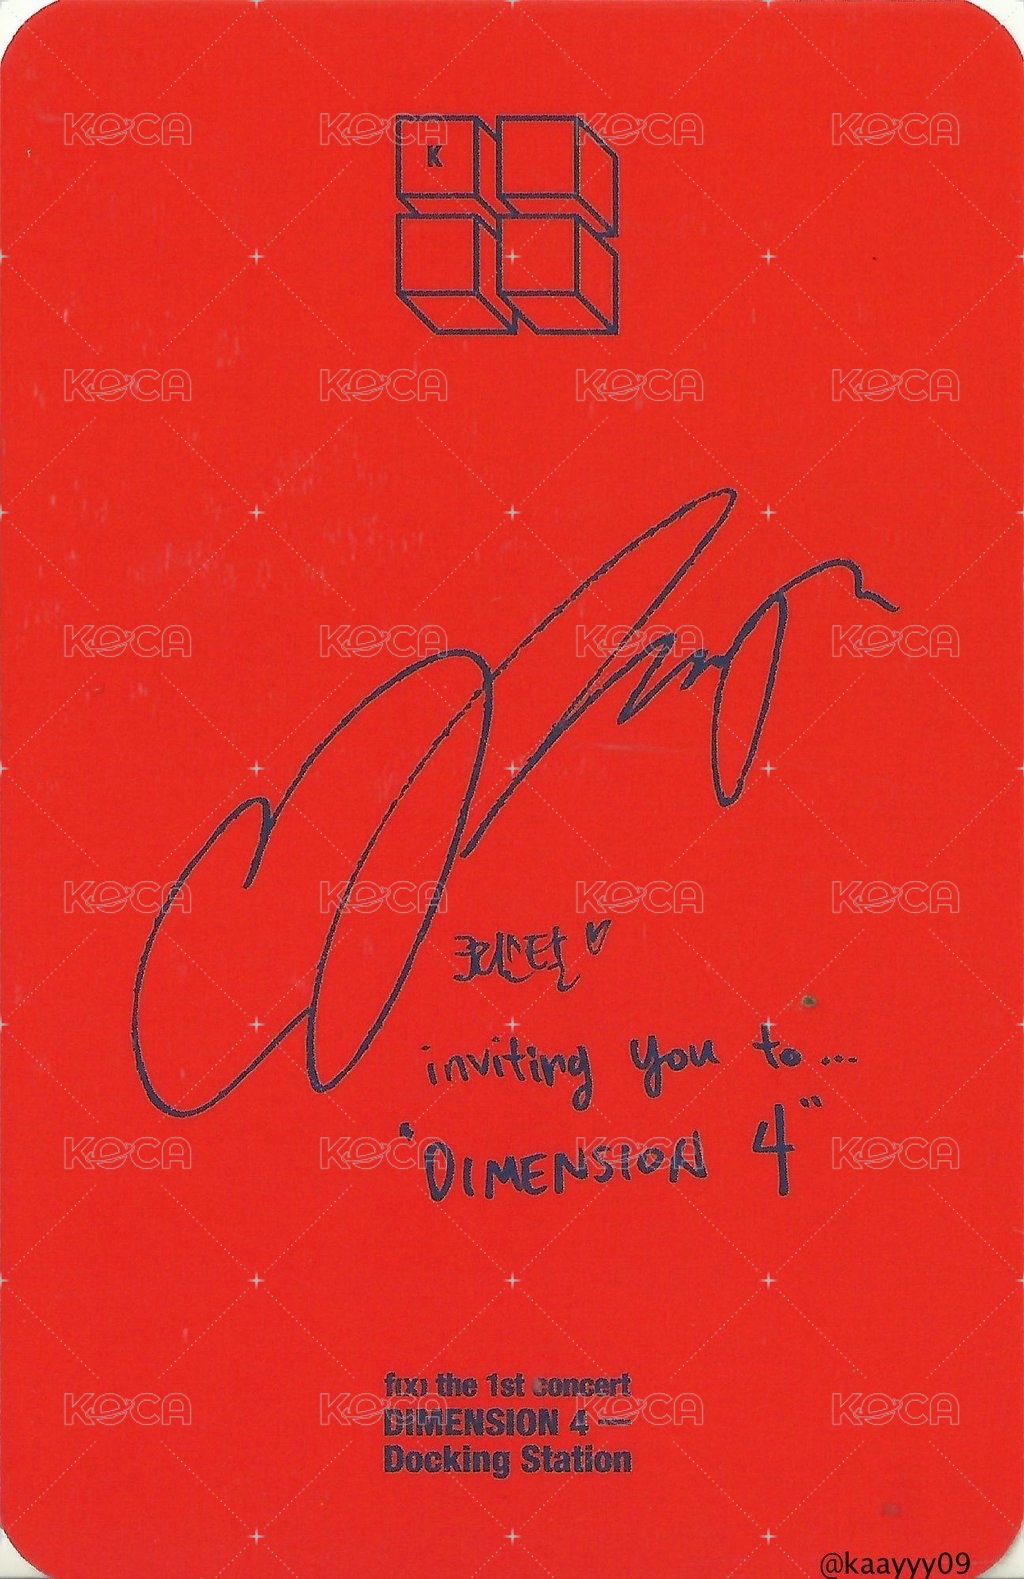 K
크리스탈♡
inviting you to...
"DIMENSION 4"
f(x) the 1st concert
DIMENSION 4 —
Docking Station
@kaayyy09
KOCA KOCA KOCA KOCA
KOCA KOCA KOCA KOCA
KOCA KOCA KOCA KOCA
KOCA KOCA KOCA KOCA
KOCA KOCA KOCA KOCA
KOCA KOCA KOCA KOCA